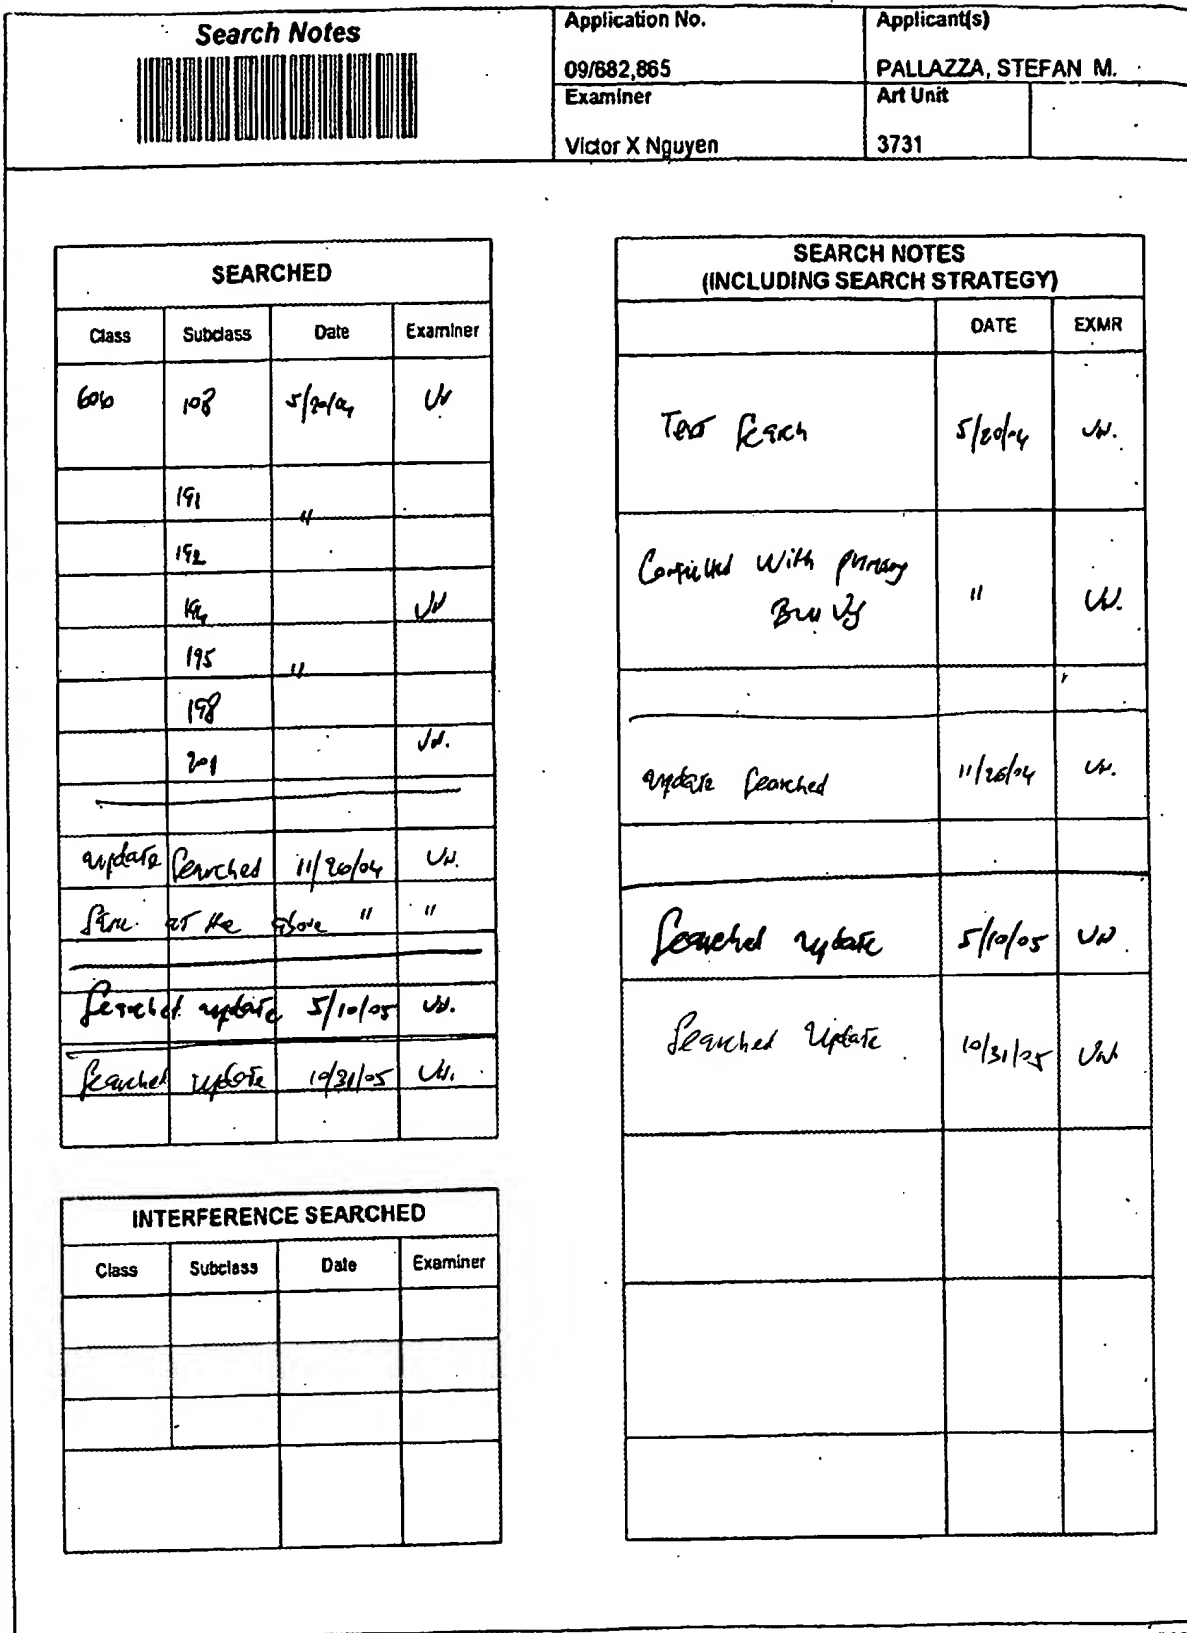 Search Notes
Application No.
09/682,865
Applicant(s)
PALLAZZA, STEFAN M.
Examiner
Victor X Nguyen
Art Unit
3731
SEARCHED
Class Subclass Date Examiner
606 108 5/20/04 VN
191 "
192
194 VN
195 "
198
201 VN.
update Searched 11/20/04 VN.
Same as the above " "
Searched update 5/10/05 VN.
Searched update 10/31/05 VN.
INTERFERENCE SEARCHED
Class Subclass Date Examiner
SEARCH NOTES
(INCLUDING SEARCH STRATEGY)
DATE EXMR
Text Search 5/20/04 VN.
Consulted With primary " VN.
update Searched 11/20/04 VN.
Searched update 5/10/05 VN.
Searched Update 10/31/05 VN